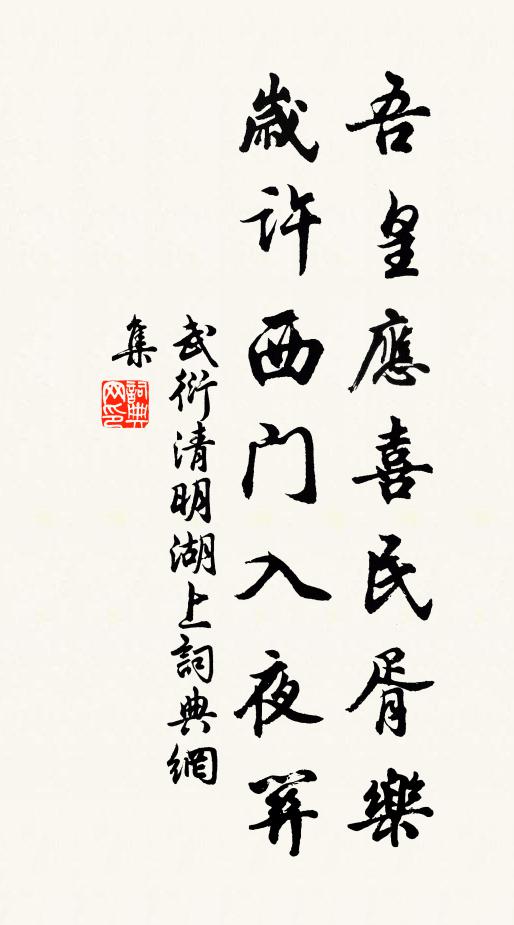 吾皇應喜民胥樂
歲許西门入夜關
武衍清明湖上詞典網
集
詞典网印